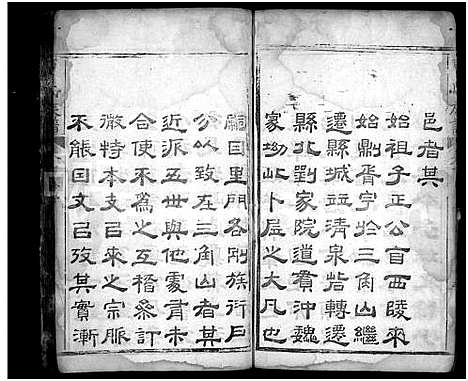 邑者其
始祖子正公自西陵來
始剙胥宇於三角山繼
遷縣城並清泉砦轉還
縣北劉家院道貫沖魏
家坳此卜居之大凡也
嗣因里門各剛族衍戶
分以致在三角山者其
近派五世與他處肅未
合使不為之互稽參訂
微特本支已來之宗脈
不能因文已攷其實漸